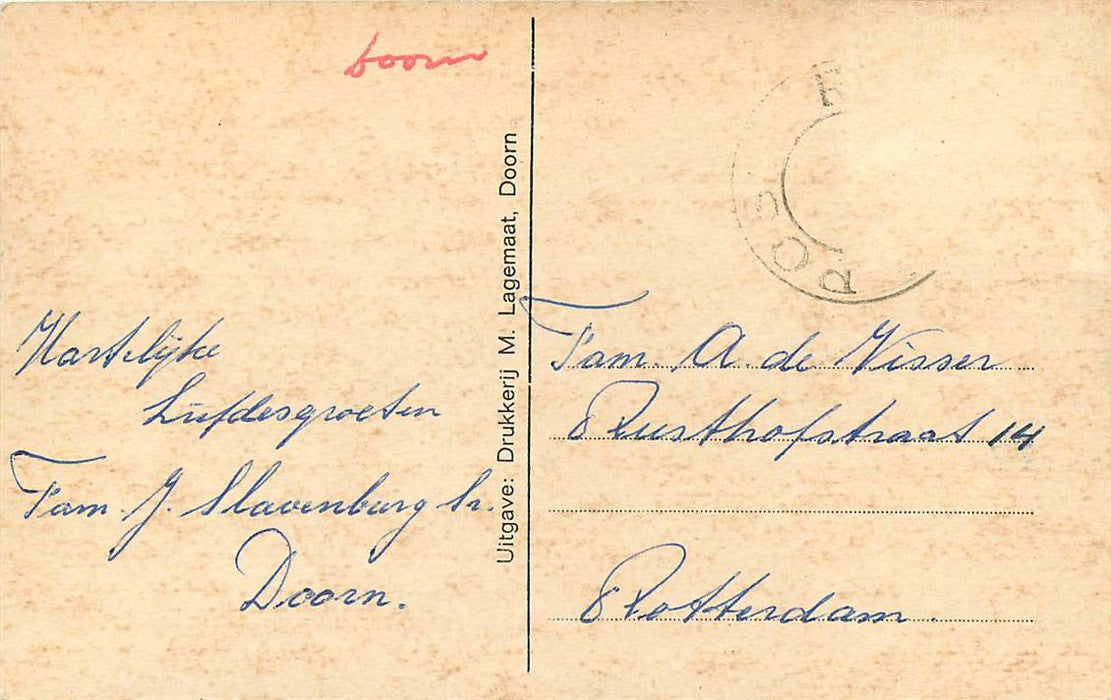 Doorn
Hartelijke
Liefdesgroeten
Fam. J. Slavenburg Sr.
Doorn.
Uitgave: Drukkerij M. Lagemaat, Doorn
Fam. A. de Visser
Rusthofstraat 14
Rotterdam.